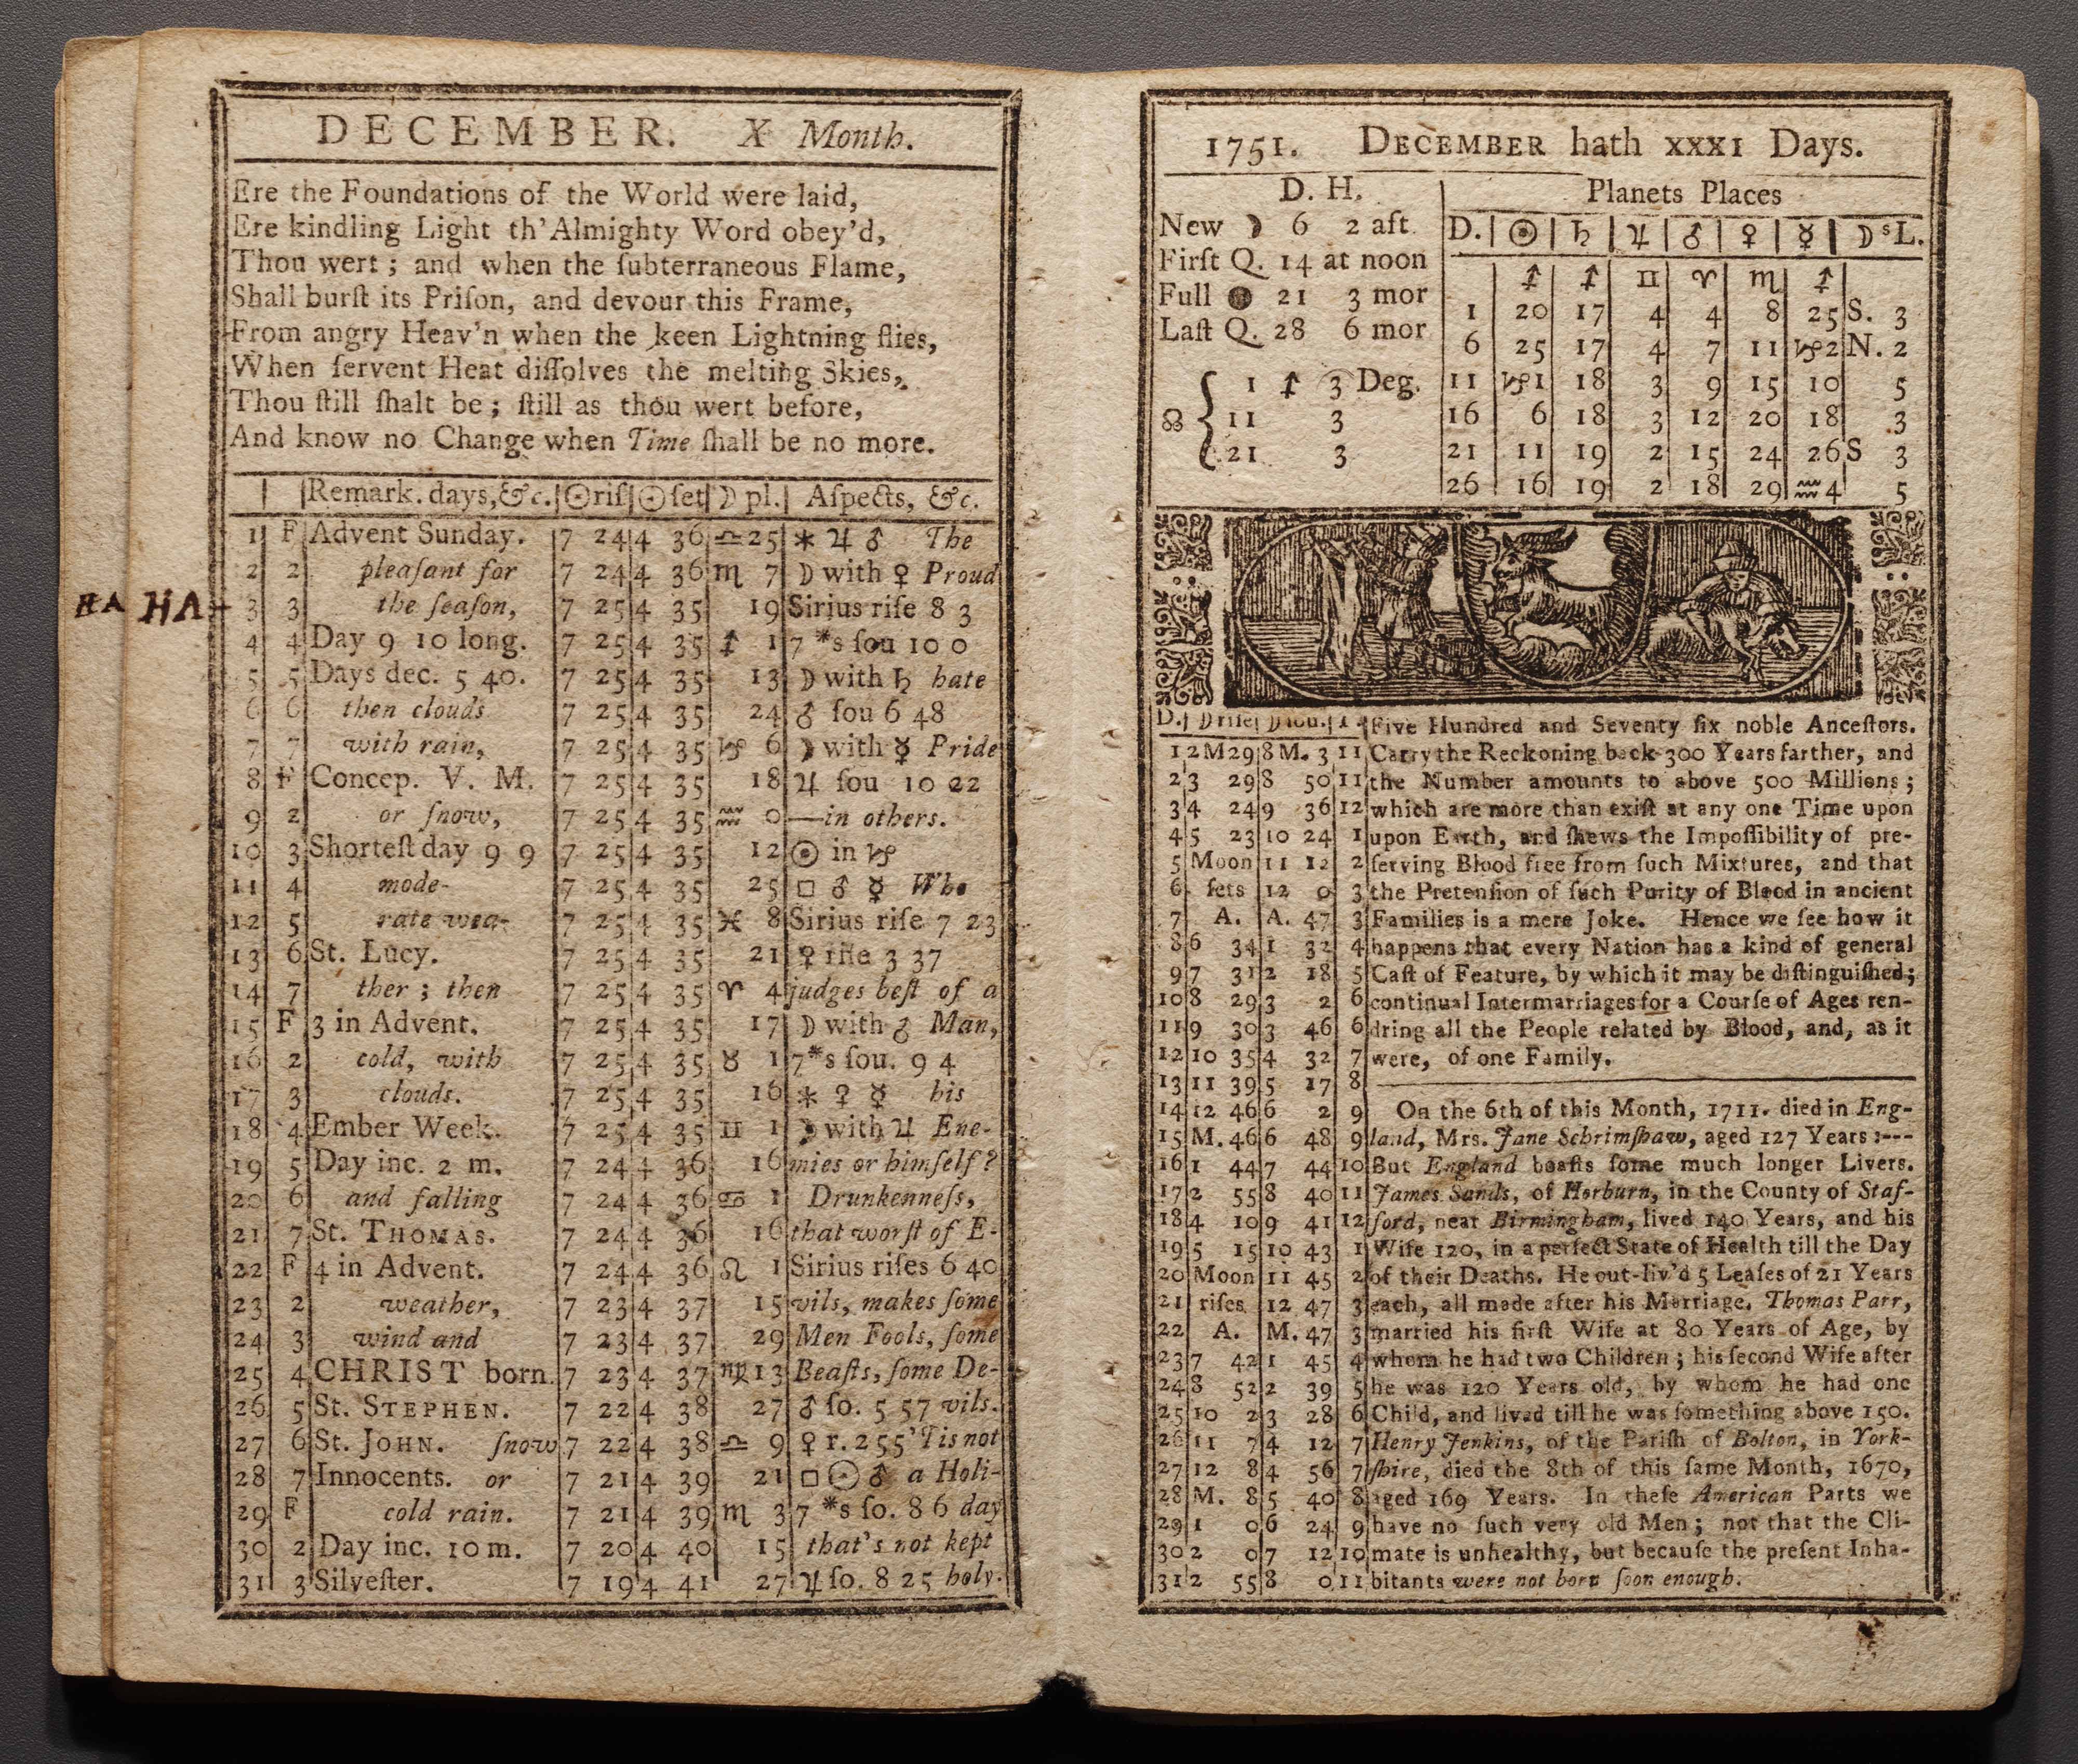 DECEMBER. X Month.
Ere the Foundations of the World were laid,
Ere kindling Light th'Almighty Word obey'd,
Thou wert; and when the ſubterraneous Flame,
Shall burſt its Priſon, and devour this Frame,
From angry Heav'n when the keen Lightning flies,
When fervent Heat diſſolves the melting Skies,
Thou ſtill ſhalt be; ſtill as thou wert before,
And know no Change when Time ſhall be no more.
Remark. days, &c. ☉riſ ☉ſet ☽ pl. Aſpects, &c.
1 F Advent Sunday. 7 24 4 36 ♎ 25 ⚹ ♃ ♂ The
2 2 pleaſant for 7 24 4 36 ♏ 7 ☽ with ♀ Proud
HA HA 3 3 the ſeaſon, 7 25 4 35 19 Sirius riſe 8 3
4 4 Day 9 10 long. 7 25 4 35 ♐ 1 7 *s ſou 10 0
5 5 Days dec. 5 40. 7 25 4 35 13 ☽ with ♄ hate
6 6 then clouds 7 25 4 35 24 ♂ ſou 6 48
7 7 with rain, 7 25 4 35 ♑ 6 ☽ with ☿ Pride
8 F Concep. V. M. 7 25 4 35 18 ♃ ſou 10 22
9 2 or ſnow, 7 25 4 35 ♒ 0 —in others.
10 3 Shorteſt day 9 9 7 25 4 35 12 ☉ in ♑
11 4 mode- 7 25 4 35 25 □ ♂ ☿ Who
12 5 rate wea- 7 25 4 35 ♓ 8 Sirius riſe 7 23
13 6 St. Lucy. 7 25 4 35 21 ♀ riſe 3 37
14 7 ther; then 7 25 4 35 ♈ 4 judges beſt of a
15 F 3 in Advent. 7 25 4 35 17 ☽ with ♂ Man,
16 2 cold, with 7 25 4 35 ♉ 1 7 *s ſou. 9 4
17 3 clouds. 7 25 4 35 16 ⚹ ♀ ☿ his
18 4 Ember Week. 7 25 4 35 ♊ 1 ☽ with ♃ Ene-
19 5 Day inc. 2 m. 7 24 4 36 16 mies or himſelf?
20 6 and falling 7 24 4 36 ♋ 1 Drunkenneſs,
21 7 St. THOMAS. 7 24 4 36 16 that worſt of E-
22 F 4 in Advent. 7 24 4 36 ♌ 1 Sirius riſes 6 40
23 2 weather, 7 23 4 37 15 vils, makes ſome
24 3 wind and 7 23 4 37 29 Men Fools, ſome
25 4 CHRIST born. 7 23 4 37 ♍ 13 Beaſts, ſome De-
26 5 St. STEPHEN. 7 22 4 38 27 ♂ ſo. 5 57 vils.
27 6 St. JOHN. ſnow 7 22 4 38 ♎ 9 ♀ r. 2 55 'Tis not
28 7 Innocents. or 7 21 4 39 21 □ ☉ ♂ a Holi-
29 F cold rain. 7 21 4 39 ♏ 3 7 *s ſo. 8 6 day
30 2 Day inc. 10 m. 7 20 4 40 15 that's not kept
31 3 Silveſter. 7 19 4 41 27 ♃ ſo. 8 25 holy.
1751. DECEMBER hath XXXI Days.
D. H.
New ☽ 6 2 aft
Firſt Q. 14 at noon
Full ● 21 3 mor
Laſt Q. 28 6 mor
☊ { 1 ♐ 3 Deg.
11 3
21 3
Planets Places
D. ☉ ♄ ♃ ♂ ♀ ☿ ☽sL.
♐ ♐ ♊ ♈ ♏ ♐
1 20 17 4 4 8 25 S. 3
6 25 17 4 7 11 ♑2 N. 2
11 ♑1 18 3 9 15 10 5
16 6 18 3 12 20 18 3
21 11 19 2 15 24 26 S 3
26 16 19 2 18 29 ♒4 5
D. ☽riſe ☽ſou. T
1 2M29 8M. 3 11
2 3 29 8 50 11
3 4 24 9 36 12
4 5 23 10 24 1
5 Moon 11 12 2
6 ſets 12 0 3
7 A. A. 47 3
8 6 34 1 32 4
9 7 31 2 18 5
10 8 29 3 2 6
11 9 30 3 46 6
12 10 35 4 32 7
13 11 39 5 17 8
14 12 46 6 2 9
15 M. 46 6 48 9
16 1 44 7 44 10
17 2 55 8 40 11
18 4 10 9 41 12
19 5 15 10 43 1
20 Moon 11 45 2
21 riſes 12 47 3
22 A. M. 47 3
23 7 42 1 45 4
24 8 52 2 39 5
25 10 2 3 28 6
26 11 7 4 12 7
27 12 8 4 56 7
28 M. 8 5 40 8
29 1 0 6 24 9
30 2 0 7 12 10
31 2 55 8 0 11
Five Hundred and Seventy ſix noble Anceſtors.
Carry the Reckoning back 300 Years farther, and
the Number amounts to above 500 Millions;
which are more than exiſt at any one Time upon
upon Earth, and ſhews the Impoſſibility of pre-
ſerving Blood free from ſuch Mixtures, and that
the Pretenſion of ſuch Purity of Blood in ancient
Families is a mere Joke. Hence we ſee how it
happens that every Nation has a kind of general
Caſt of Feature, by which it may be diſtinguiſhed;
continual Intermarriages for a Courſe of Ages ren-
dring all the People related by Blood, and, as it
were, of one Family.
On the 6th of this Month, 1711. died in Eng-
land, Mrs. Jane Schrimſhaw, aged 127 Years :---
But England boaſts ſome much longer Livers.
James Sands, of Horburn, in the County of Staf-
ford, near Birmingham, lived 140 Years, and his
Wife 120, in a perfect State of Health till the Day
of their Deaths. He out-liv'd 5 Leaſes of 21 Years
each, all made after his Marriage. Thomas Parr,
married his firſt Wife at 80 Years of Age, by
whom he had two Children; his ſecond Wife after
he was 120 Years old, by whom he had one
Child, and lived till he was ſomething above 150.
Henry Jenkins, of the Pariſh of Bolton, in York-
ſhire, died the 8th of this ſame Month, 1670,
aged 169 Years. In theſe American Parts we
have no ſuch very old Men; not that the Cli-
mate is unhealthy, but becauſe the preſent Inha-
bitants were not born ſoon enough.